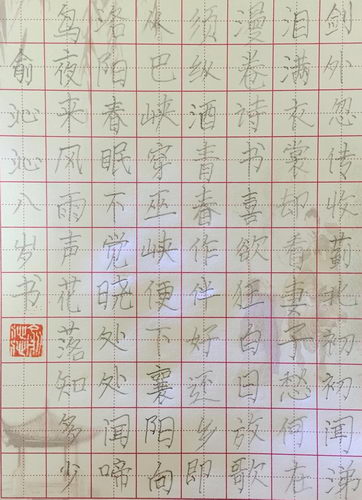 剑外忽传收蓟北初初闻涕
泪满衣裳却看妻子愁何在
漫卷诗书喜欲狂白日放歌
须纵酒青春作伴好还乡即
从巴峡穿巫峡便下襄阳向
洛阳春眠不觉晓处处闻啼
鸟夜来风雨声花落知多少
俞沁沁八岁书